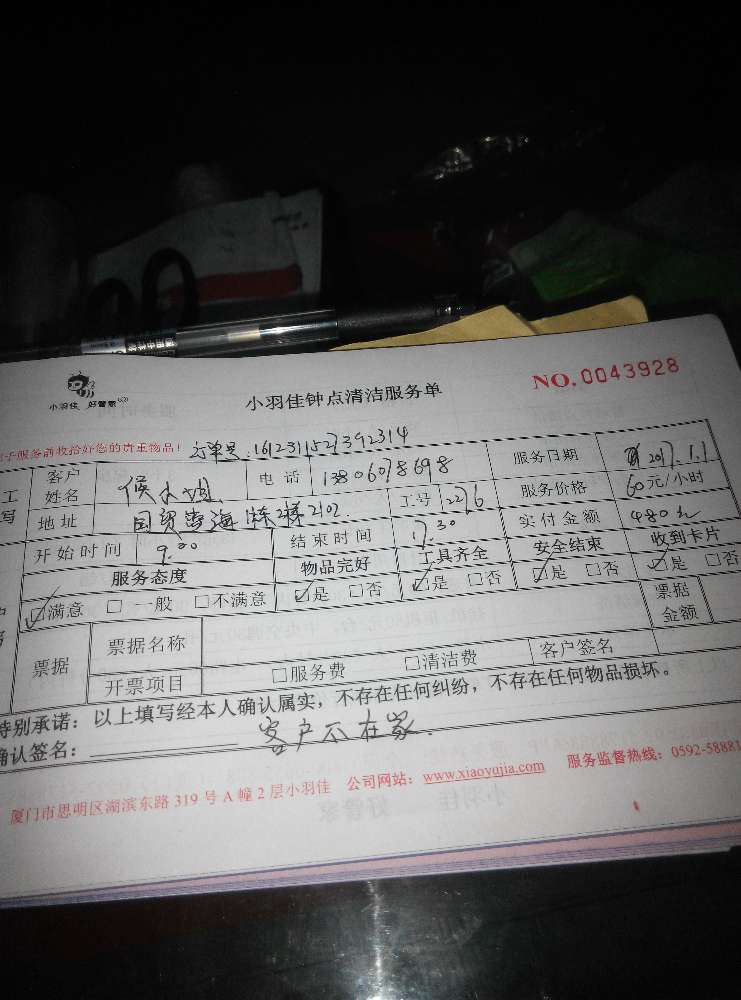 小羽佳 好管家
小羽佳钟点清洁服务单
NO.0043928
服务前收拾好您的贵重物品!
客户姓名 电话 13806078698 服务日期 2017.1.1
地址 工号 2276 服务价格 60元/小时
开始时间 9.00 结束时间 17.30 实付金额 480元
服务态度 物品完好 工具齐全 安全结束 收到卡片
☑满意 □一般 □不满意 ☑是 □否 ☑是 □否 ☑是 □否 ☑是 □否
票据 票据名称 票据金额
开票项目 □服务费 □清洁费 客户签名
特别承诺:以上填写经本人确认属实,不存在任何纠纷,不存在任何物品损坏。
确认签名: 客户不在家.
厦门市思明区湖滨东路319号A幢2层小羽佳 公司网站:www.xiaoyujia.com 服务监督热线:0592-58881